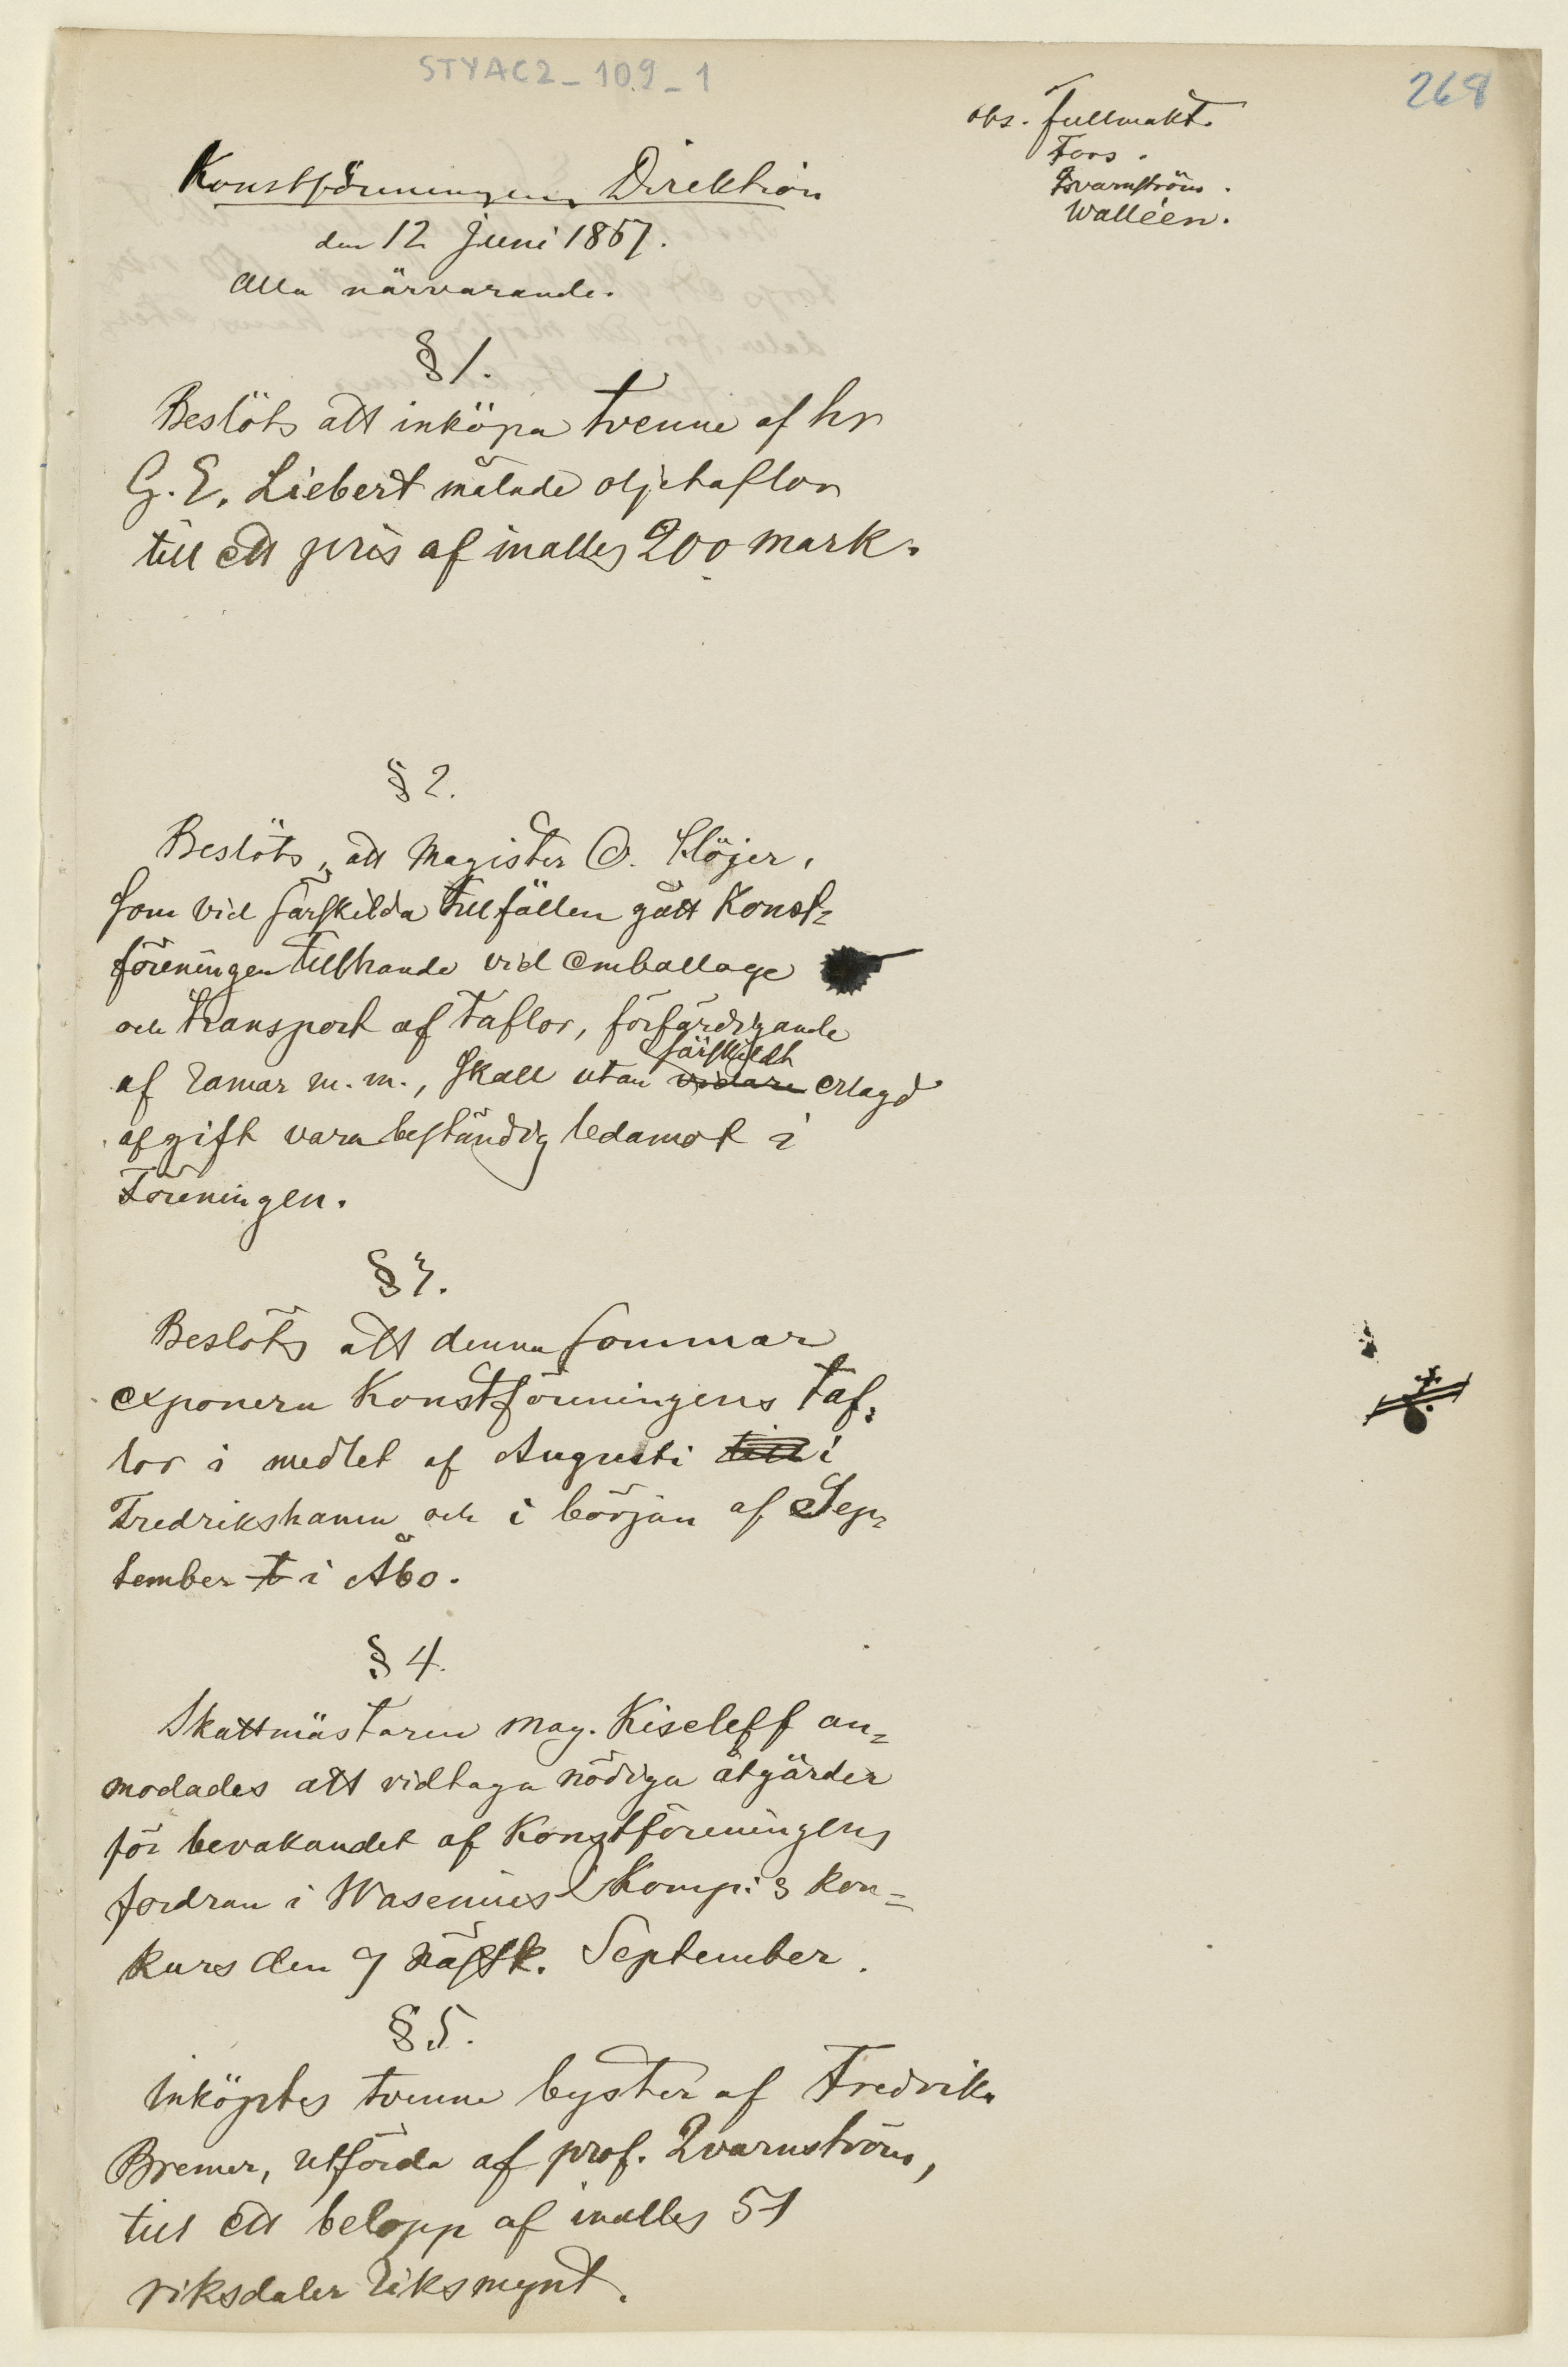 STYAC2_109_1
268
obs. fullmakt.
Fors.
Qvarnström.
Walléen.
Konstföreningens Direktion
den 12 Juni 1867.
Alla närvarande.
§ 1.
Beslöts att inköpa tvenne af hr
G. E. Liebert målade oljetaflor
till ett pris af inalles 200 mark.
§ 2.
Beslöts, att Magister O. Klöjer,
som vid särskilda tillfällen gått Konst-
föreningen tillhanda vid emballage
och transport af taflor, förfärdigande
särskildt
af ramar m. m., skall utan vidare erlagd
afgift vara beständig ledamot i
Föreningen.
§ 3.
Beslöts att denna sommar
exponera Konstföreningens taf-
lor i medlet af Augusti till i
Fredrikshamn och i början af Sep-
tember t i Åbo.
§ 4.
Skattmästaren mag. Kiseleff an-
modades att vidtaga nödiga åtgärder
för bevakandet af Konstföreningens
fordran i Wasenius & Komp:s kon-
kurs den 9 nästk. September.
§ 5.
Inköptes tvenne byster af Fredrika
Bremer, utförda af prof. Qvarnström,
till ett belopp af inalles 51
riksdaler riksmynt.